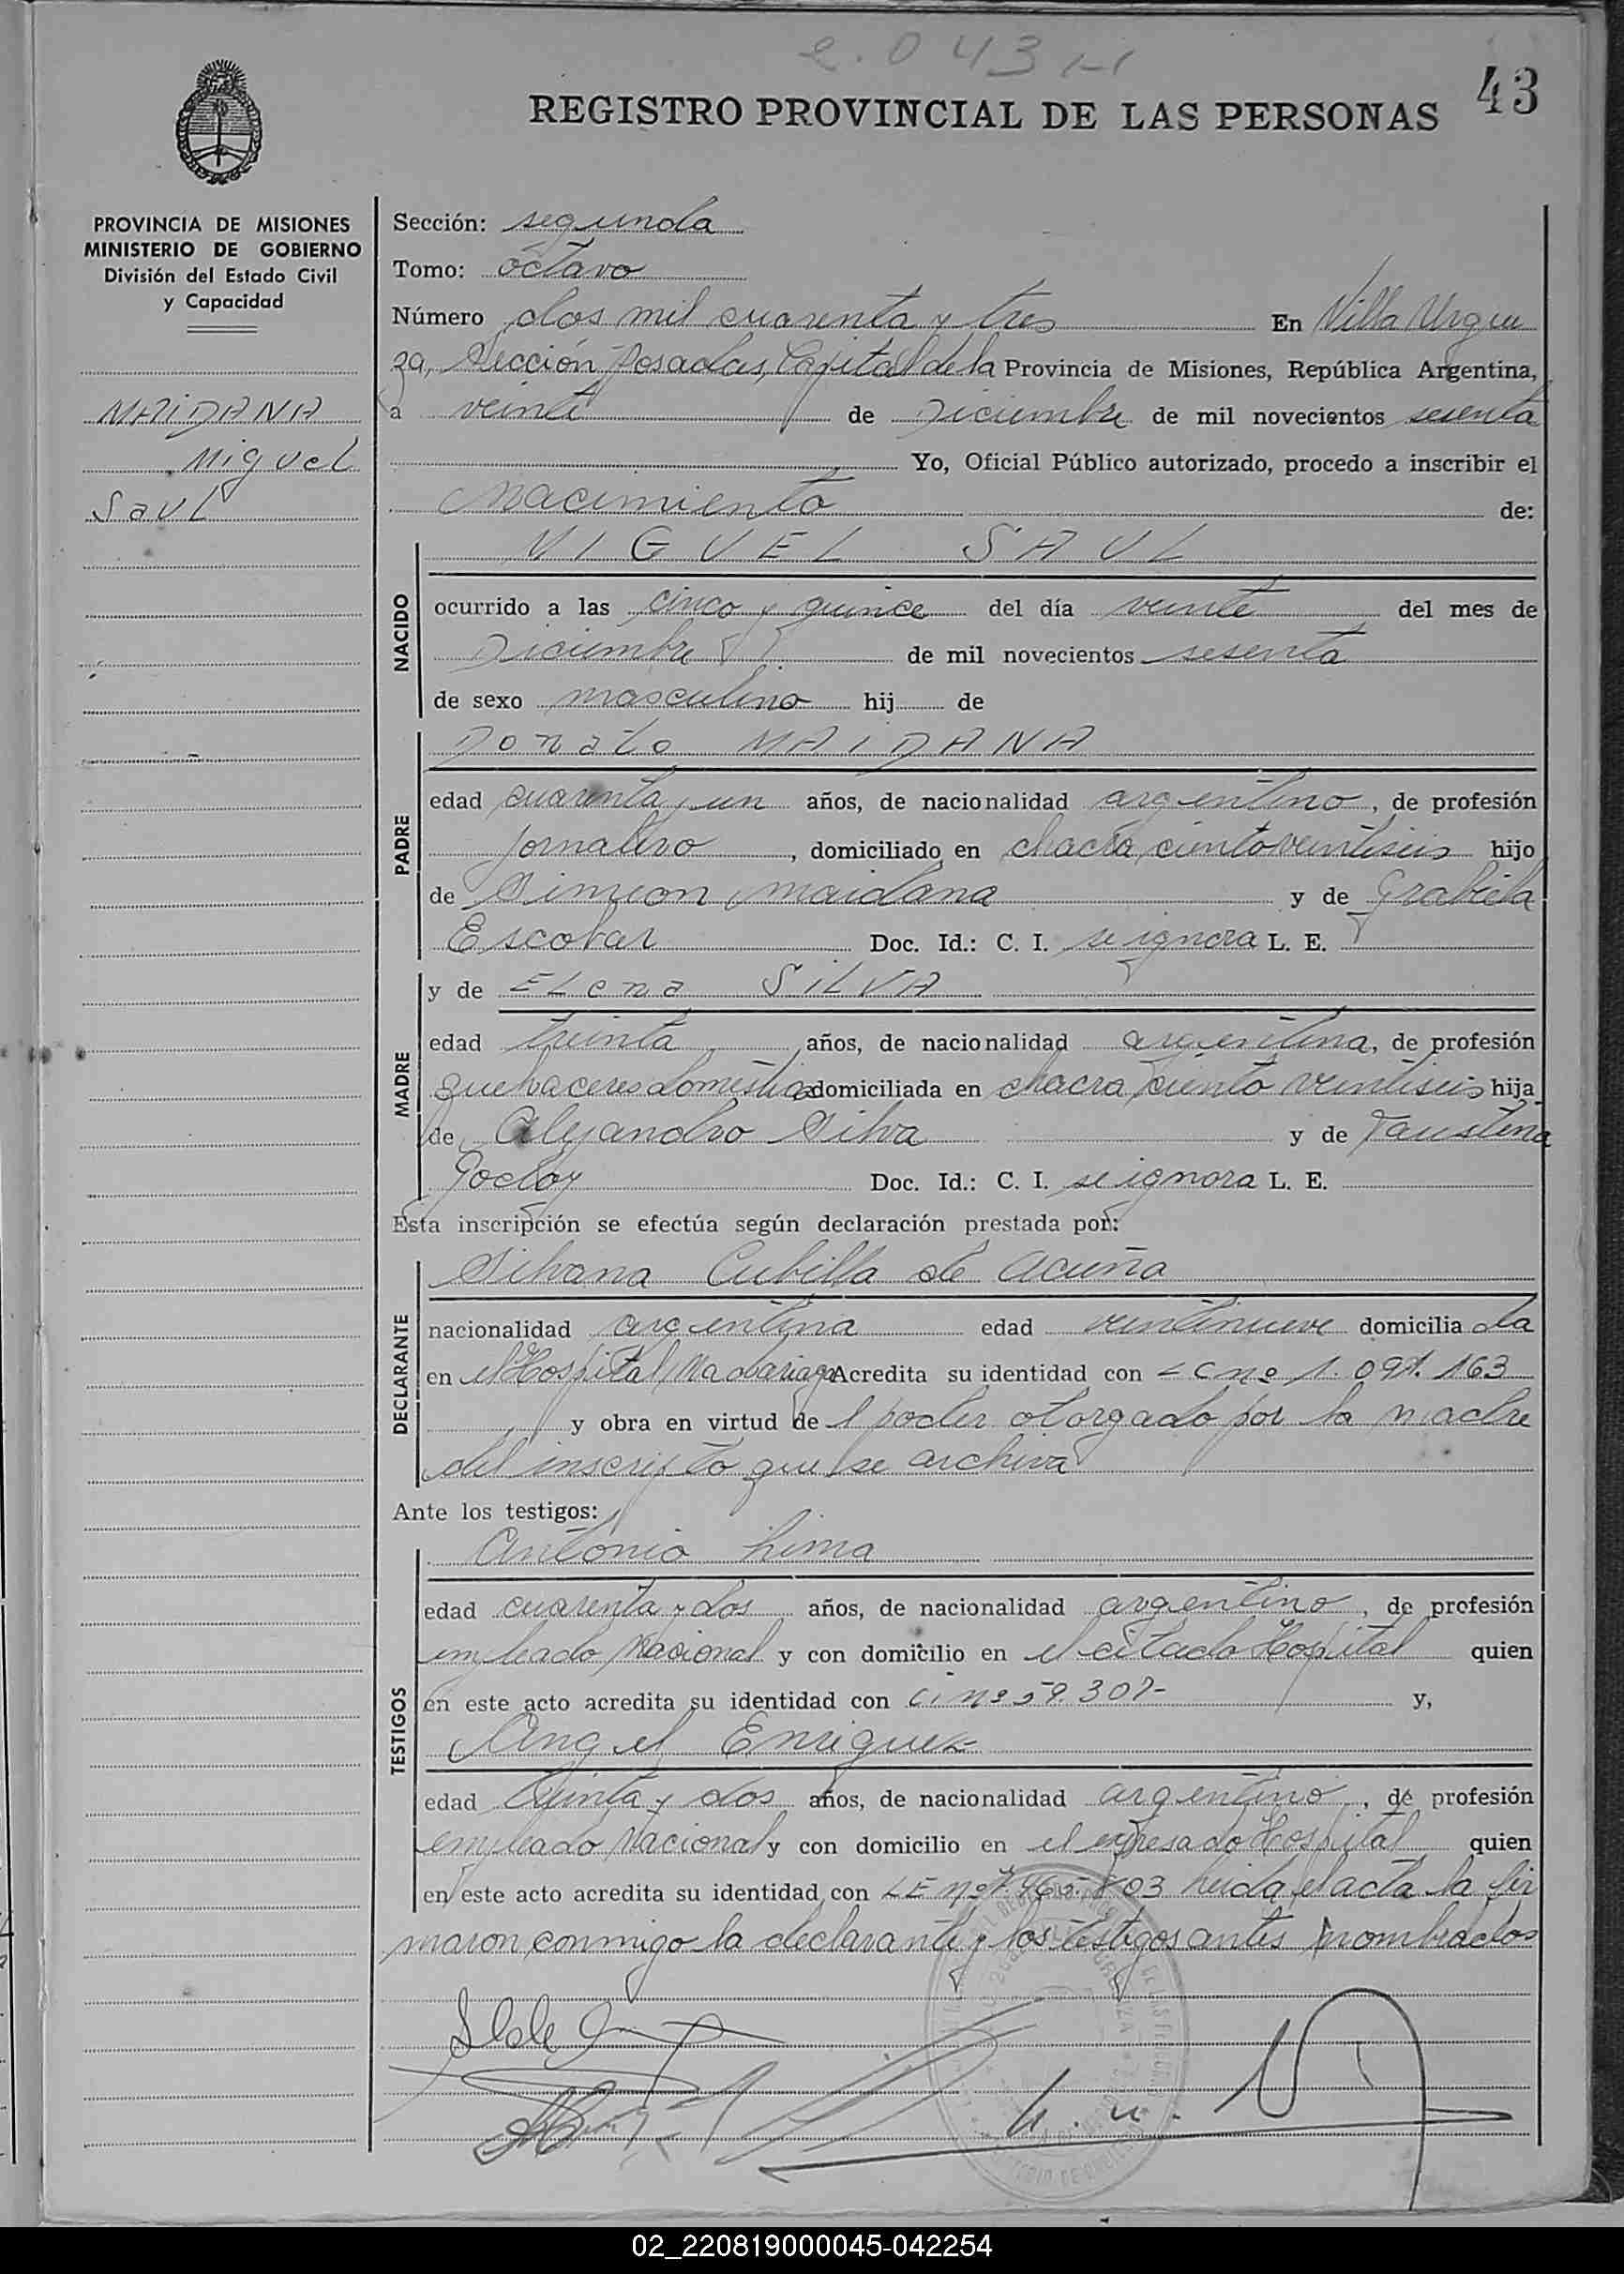 2.043
43
REGISTRO PROVINCIAL DE LAS PERSONAS
PROVINCIA DE MISIONES
MINISTERIO DE GOBIERNO
División del Estado Civil
y Capacidad
MAIDANA
Miguel
Saul
Sección: segunda
Tomo: octavo
Número dos mil cuarenta y tres En Villa Urqui
za, Sección Posadas, Capital de la Provincia de Misiones, República Argentina,
a veinte de Diciembre de mil novecientos sesenta
Yo, Oficial Público autorizado, procedo a inscribir el
Nacimiento de:
NACIDO
MIGUEL SAUL
ocurrido a las cinco y quince del día veinte del mes de
Diciembre de mil novecientos sesenta
de sexo masculino hij de
PADRE
Donato MAIDANA
edad cuarenta y un años, de nacionalidad argentino, de profesión
jornalero, domiciliado en chacra ciento veintiseis hijo
de Simeon Maidana y de Grabiela
Escobar Doc. Id.: C. I. se ignora L. E.
MADRE
y de ELena SILVA
edad treinta años, de nacionalidad argentina, de profesión
quehaceres domesticos domiciliada en chacra ciento veintiseis hija
de Alejandro Silva y de Faustina
Godoy Doc. Id.: C. I. se ignora L. E.
Esta inscripción se efectúa según declaración prestada por:
DECLARANTE
Silvana Cubilla de Acuña
nacionalidad argentina edad veintinueve domicilia da
en el Hospital Madariaga Acredita su identidad con LC nº 1.091.163
y obra en virtud de l poder otorgado por la madre
del inscripto que se archiva
Ante los testigos:
TESTIGOS
Antonio Lima
edad cuarenta y dos años, de nacionalidad argentino, de profesión
empleado Nacional y con domicilio en el citado Hospital quien
en este acto acredita su identidad con C.I nº 59.307- y,
Angel Enriquez
edad treinta y dos años, de nacionalidad argentino, de profesión
empleado Nacional y con domicilio en el expresado Hospital quien
en este acto acredita su identidad con LE nº 7.465.803 Leida el acta la fir
maron conmigo la declarante y los testigos antes nombrados
02_220819000045-042254